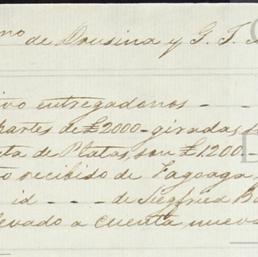 no de Dousina y G. T.
ivo entregadonos - - -
partes de £2000- giradas
ta de Platas, son £1,200-
o recibido de Fagoaga
id - - - de Siegfried Ba
levado a cuenta nueva